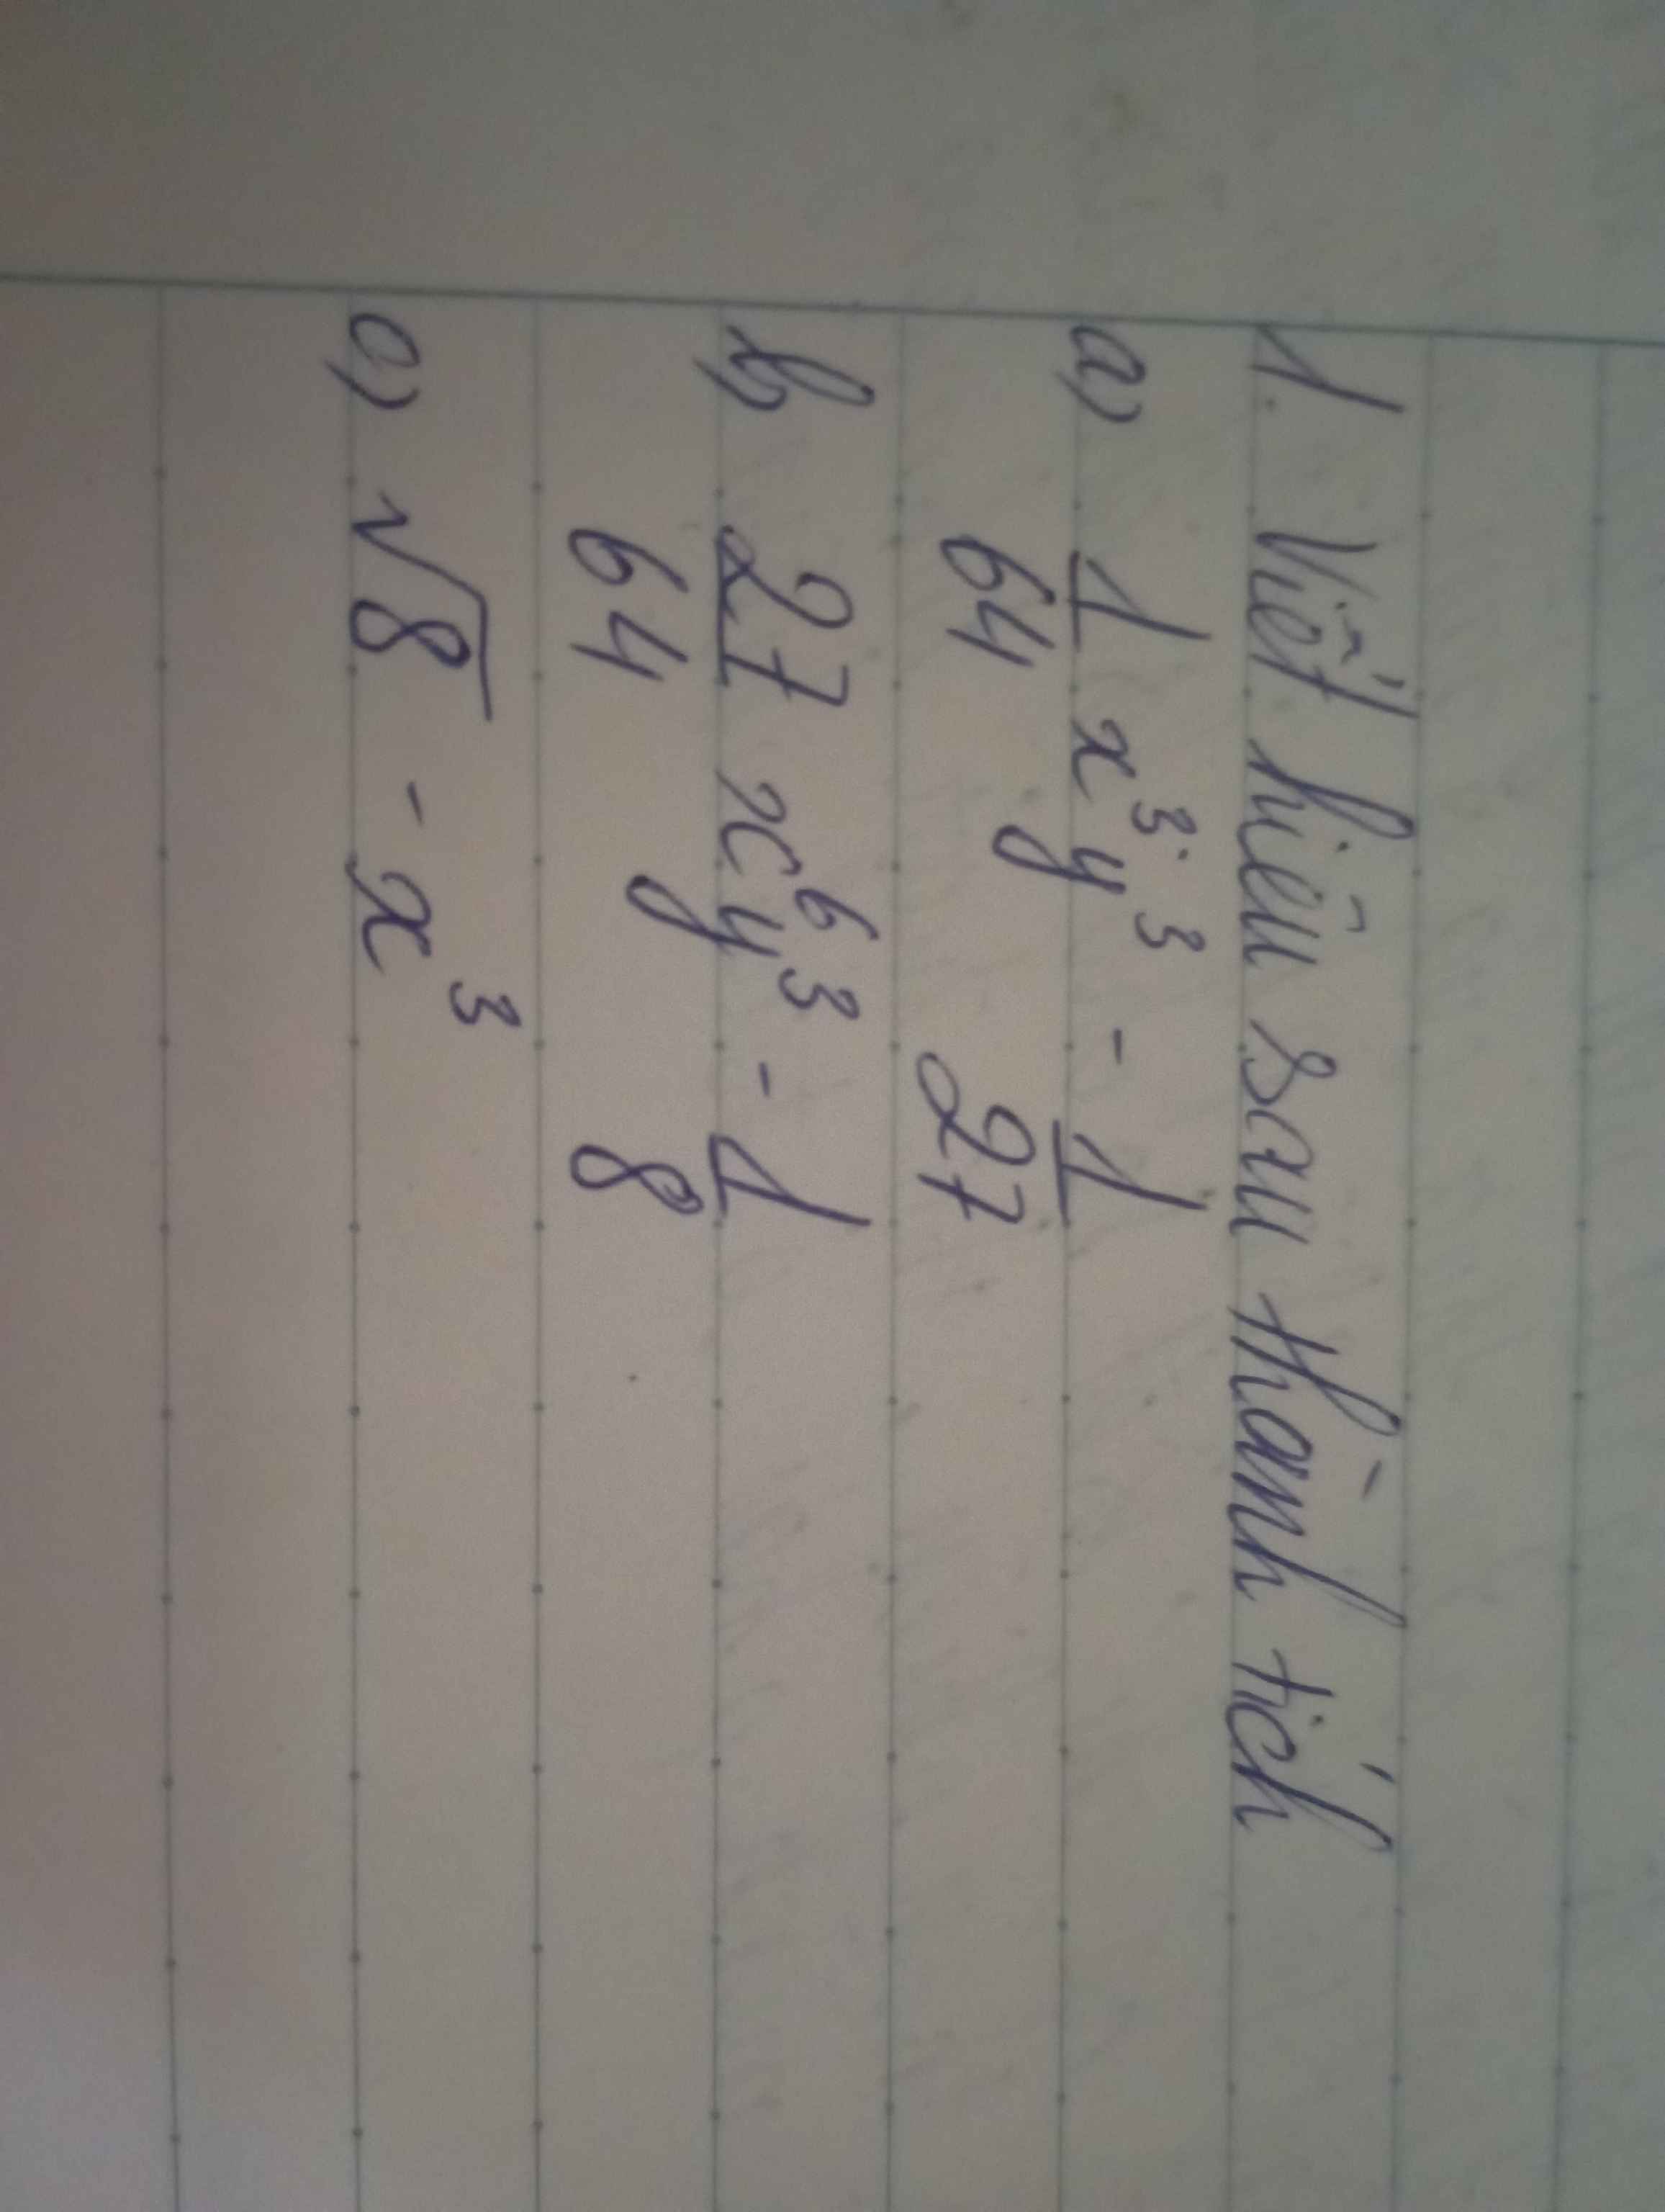 1. Viết hiệu sau thành tích
a) 1/64 x³y³ - 1/27
b) 27/64 x⁶y³ - 1/8
c) √8 - x³